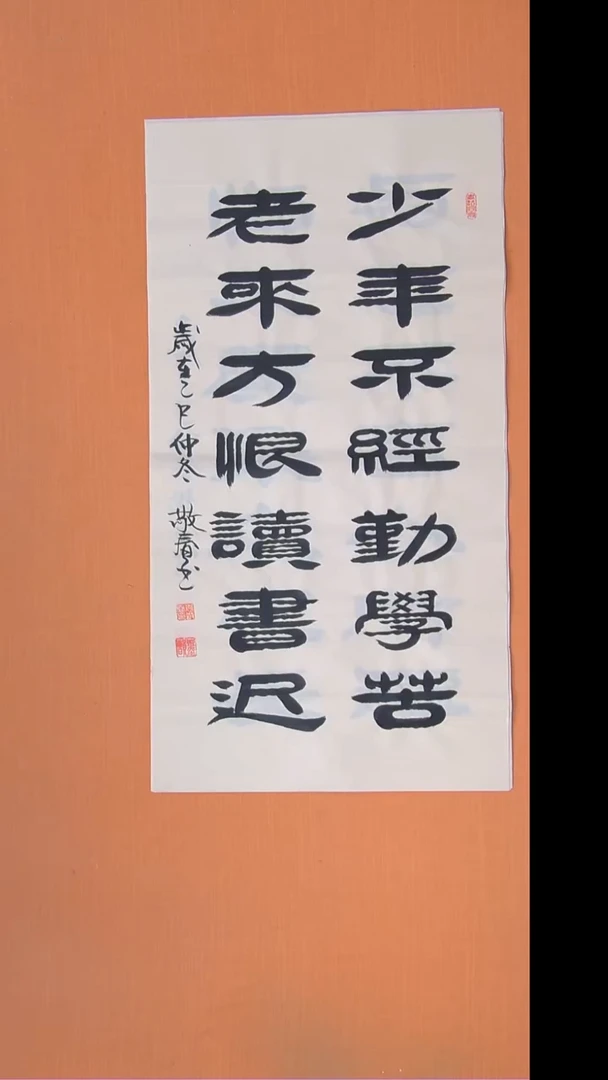 少年不經勤學苦
老來方恨讀書迟
歲在乙巳仲冬 敬春书